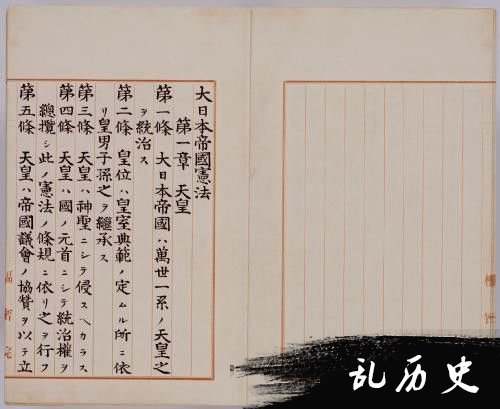 大日本帝國憲法
第一章 天皇
第一條 大日本帝國ハ萬世一系ノ天皇之
ヲ統治ス
第二條 皇位ハ皇室典範ノ定ムル所ニ依
リ皇男子孫之ヲ繼承ス
第三條 天皇ハ神聖ニシテ侵スヘカラス
第四條 天皇ハ國ノ元首ニシテ統治權ヲ
總攬シ此ノ憲法ノ條規ニ依リ之ヲ行フ
第五條 天皇ハ帝國議會ノ協贊ヲ以テ立
乱历史